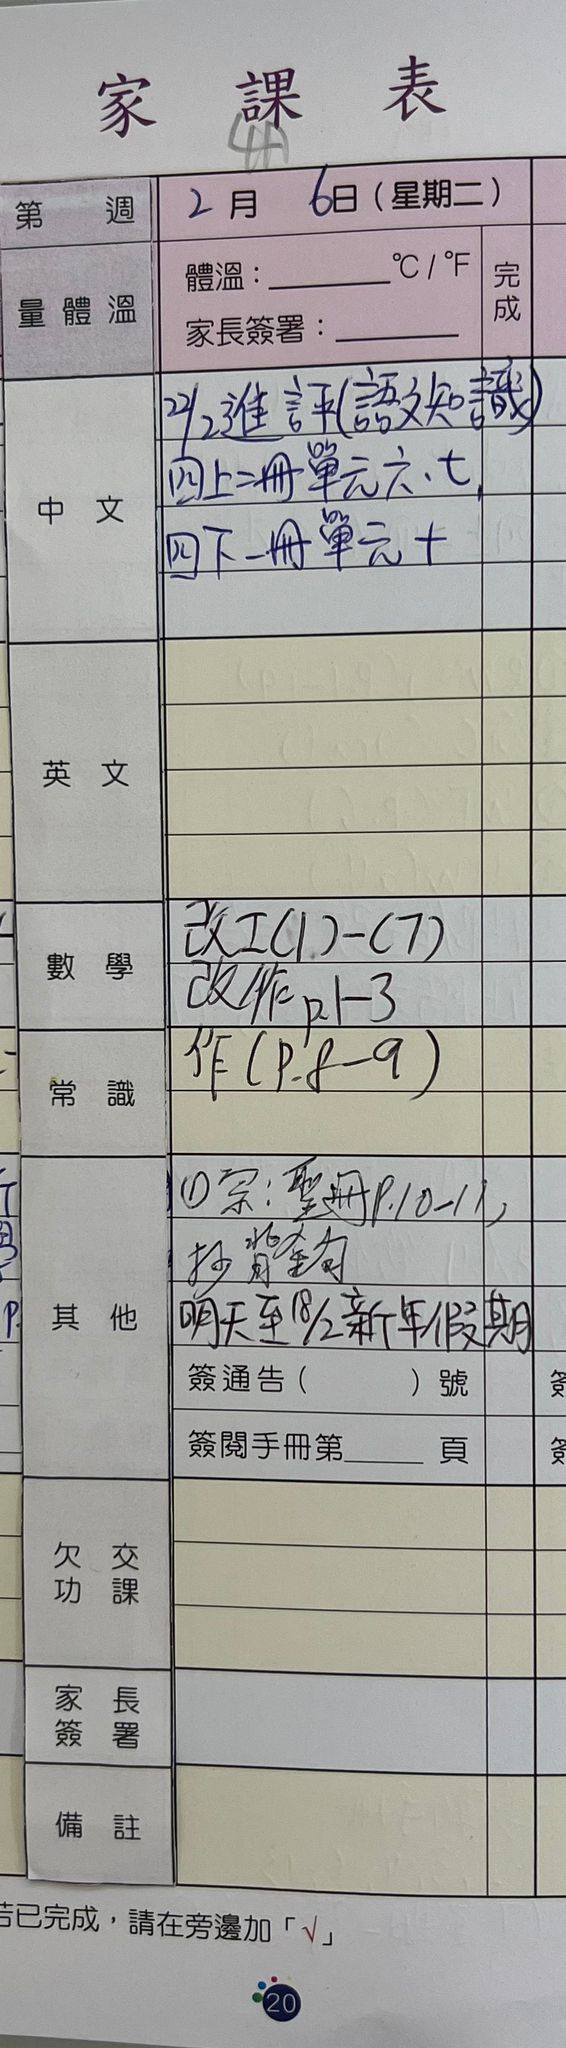 家課表
4A
第 週
2月 6日(星期二)
量體溫
體溫：______°C / °F
家長簽署：______
完成
中文
22/2進評(語文知識)
四上二冊單元六、七,
四下一冊單元十
英文
數學
改工(1)-(7)
改作p.1-3
常識
作(P.8-9)
其他
①宗：聖冊P.10-11,
抄背金句
明天至18/2新年假期
簽通告( )號
簽閱手冊第____頁
欠交功課
家長簽署
備註
若已完成，請在旁邊加「√」
20